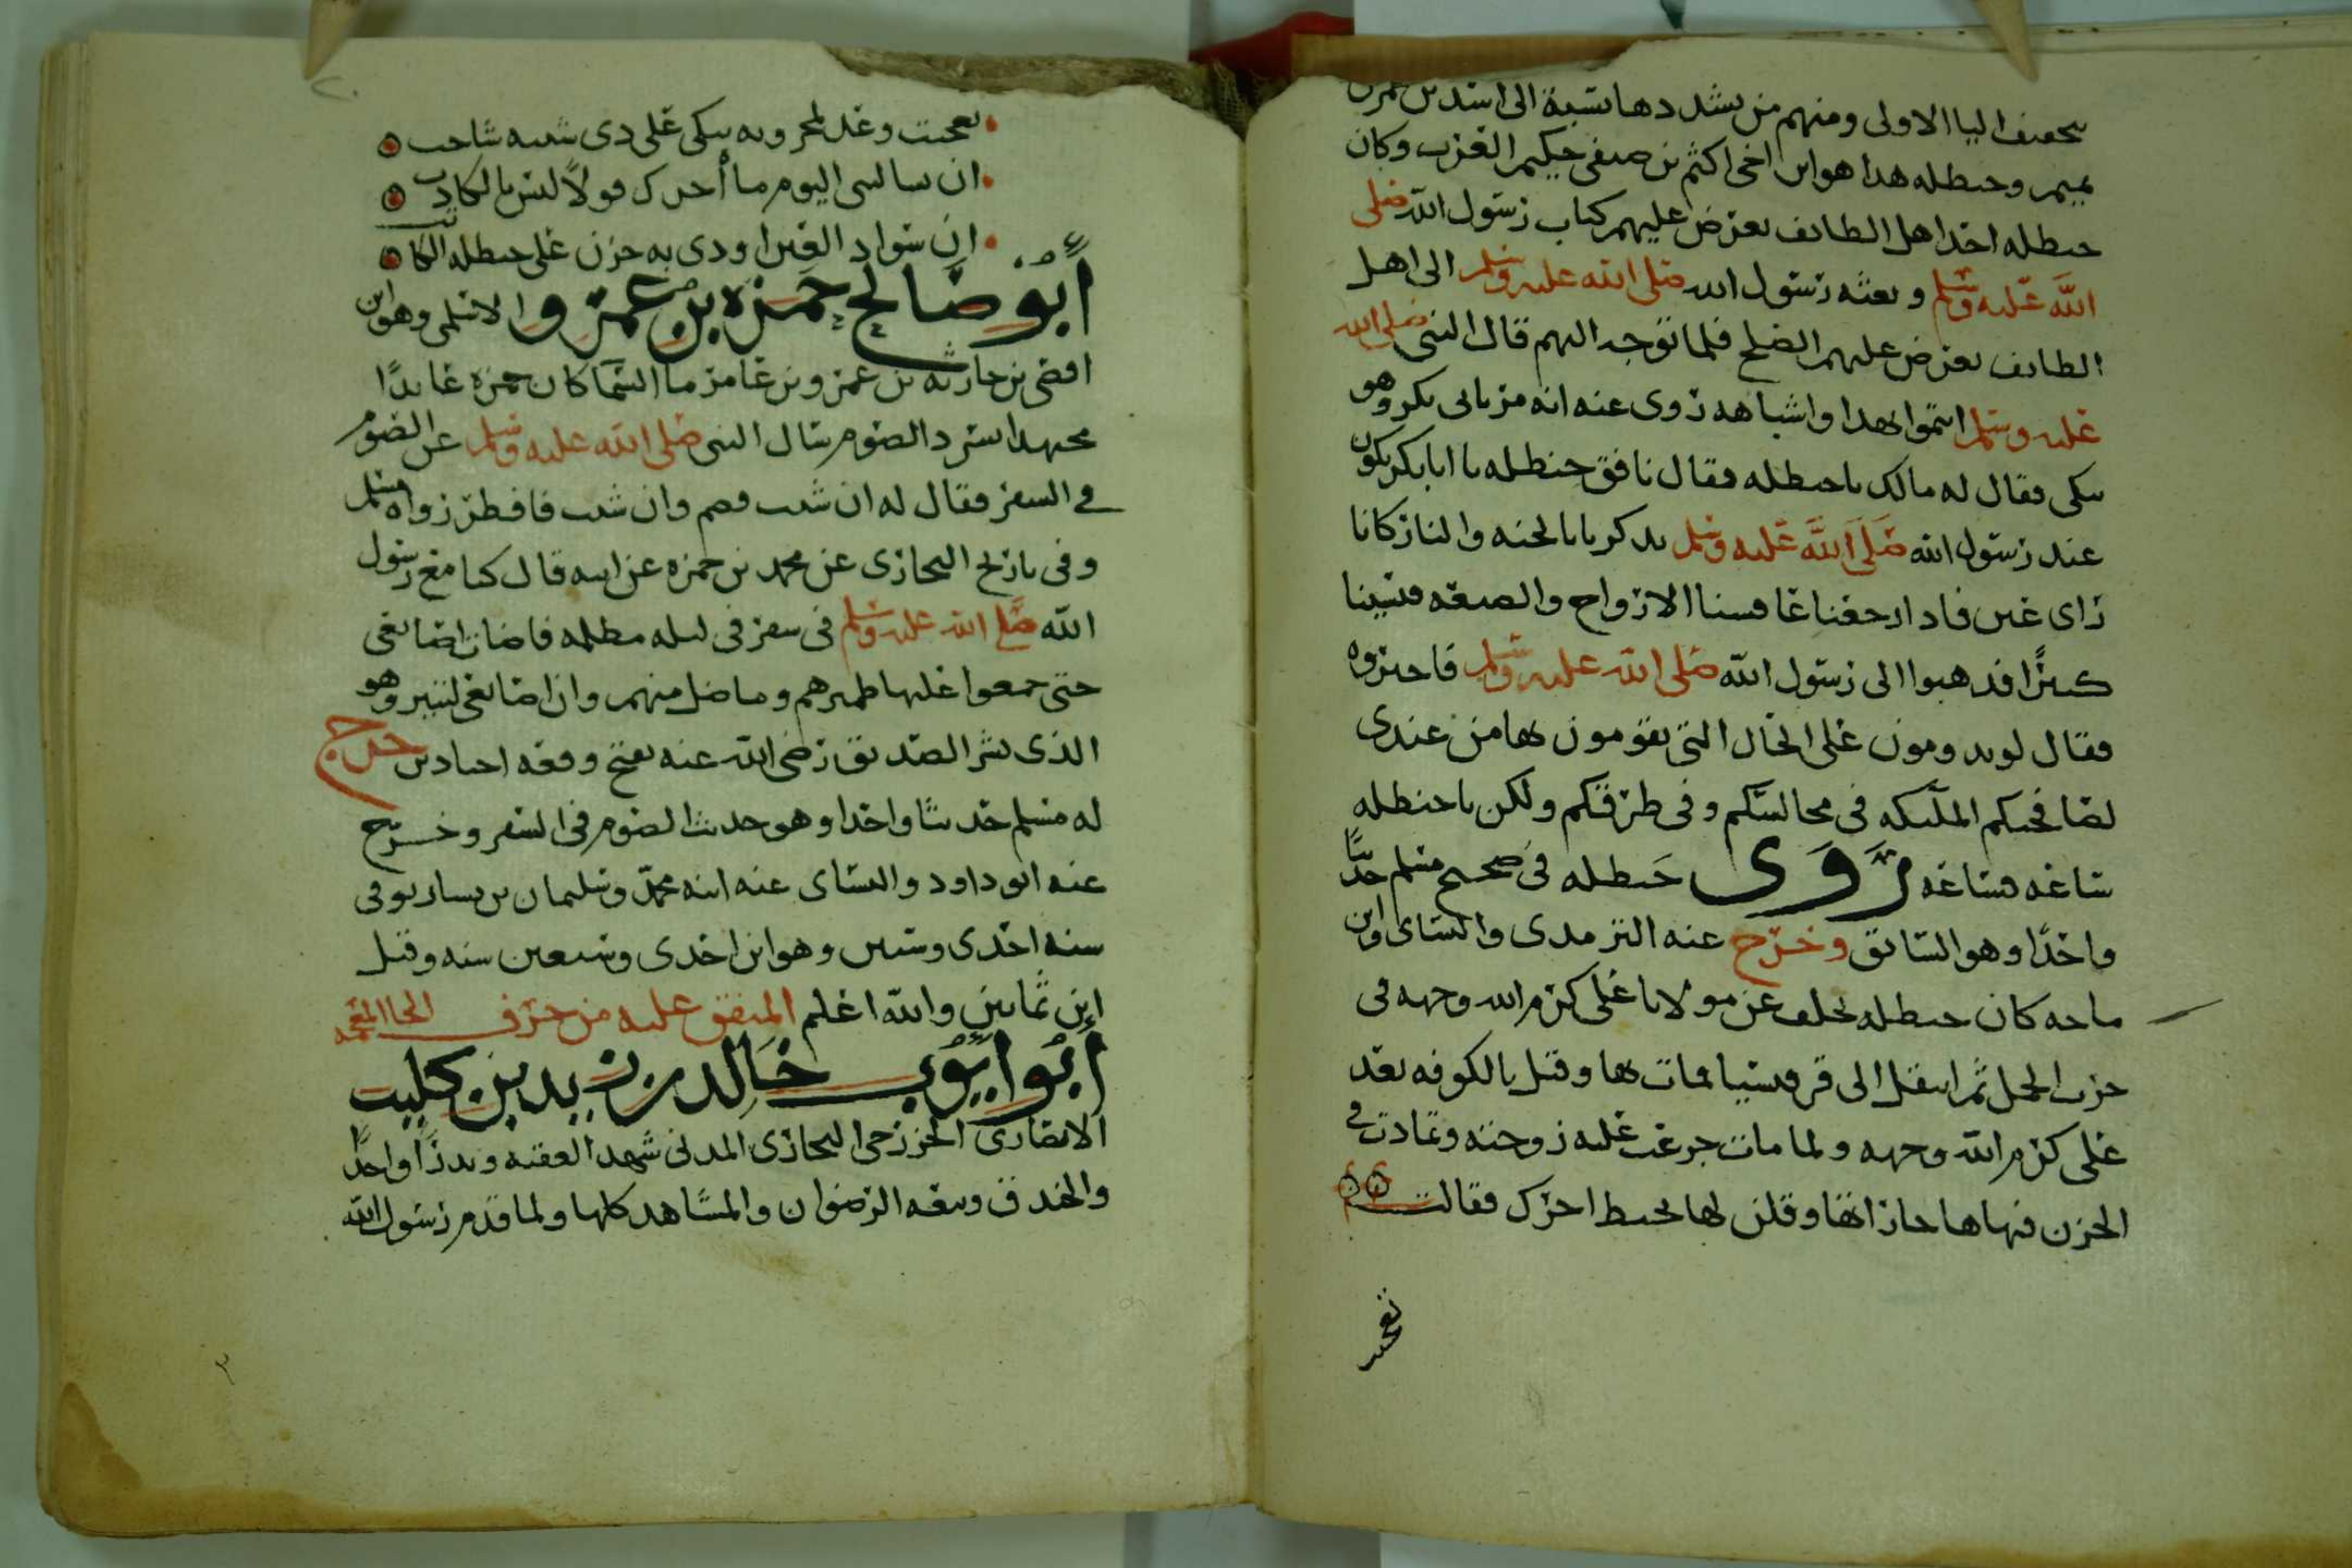 بتخفيف اليا الاولى ومنهم من يشددها نسبة الى اسد بن عمرو بن
تميم وحنظله هذا هو ابن اخى اكثم بن صيفى حكيم العرب وكان
حنظله احد اهل الطايف يعرض عليهم كتاب رسول الله صلى
الله عليه وسلم وبعثه رسول الله صلى الله عليه وسلم الى اهل
الطايف يعرض عليهم الصلح فلما توجه اليهم قال النبى صلى الله
عليه وسلم ايتموا بهذا واشباهه روى عنه انه مر بابى بكر وهو
يبكى فقال له مالك يا حنظله فقال نافق حنظله يا ابا بكر نكون
عند رسول الله صلى الله عليه وسلم يذكرنا بالجنه والنار كانا
راى عين فاذا رجعنا عافسنا الازواج والضيعه ونسينا
كثيرًا فذهبوا الى رسول الله صلى الله عليه وسلم فاخبروه
فقال لو تدومون على الحال التى تقومون بها من عندى
لصافحتكم الملئكه فى مجالسكم وفى طرقكم ولكن يا حنظله
ساعه فساعه روى حنظله فى صحيح مسلم حديثًا
واحدًا وهو السابق وخرج عنه الترمذى والنساى وابن
ماجه كان حنظله تخلف عن مولانا على كرم الله وجهه فى
حرب الجمل ثم انتقل الى قرقيسيا فمات بها وقيل بالكوفه بعد
على كرم الله وجهه ولما مات جزعت عليه زوجته وتمادت فى
الحزن فنهاها جاراتها وقلن لها يحبط اجرك فقالت
تعجبت
تعجبت وعد لمحزونه تبكى على ذى شيبه شاحب
ان تسالينى اليوم ما أحدك قولاً ليس بالكاذب
ان سواد العين اودى به حزن على حنظله الكاتب
أبو صالح حمزه بن عمرو الاسلمى وهو ابن
افصى بن حارثه بن عمرو بن عامر ما السما كان حمزه عابدًا
مجتهدا يسرد الصوم سال النبى صلى الله عليه وسلم عن الصوم
فى السفر فقال له ان شيت فصم وان شيت فافطر رواه مسلم
وفى تاريخ البخارى عن محمد بن حمزه عن ابيه قال كنا مع رسول
الله صلى الله عليه وسلم فى سفر فى ليله مظلمه فاضات اصابعى
حتى جمعوا عليها ظهرهم وما ضل منهم وان اصابعى لتنير وهو
الذى بشر الصديق رضى الله عنه بفتح وقعه اجنادين خرج
له مسلم حديثا واحدا وهو حديث الصوم فى السفر وخرج
عنه ابو داود والنساى عنه ابنه محمد وسليمان بن يسار توفى
سنه احدى وستين وهو ابن احدى وسبعين سنه وقيل
ابن ثمانين والله اعلم المتفق عليه من حرف الخا المعجمه
أبو ايوب خالد بن زيد بن كليب
الانصارى الخزرجى البخارى المدنى شهد العقبه وبدرًا واحدًا
والخندق وبيعه الرضوان والمشاهد كلها ولما قدم رسول الله